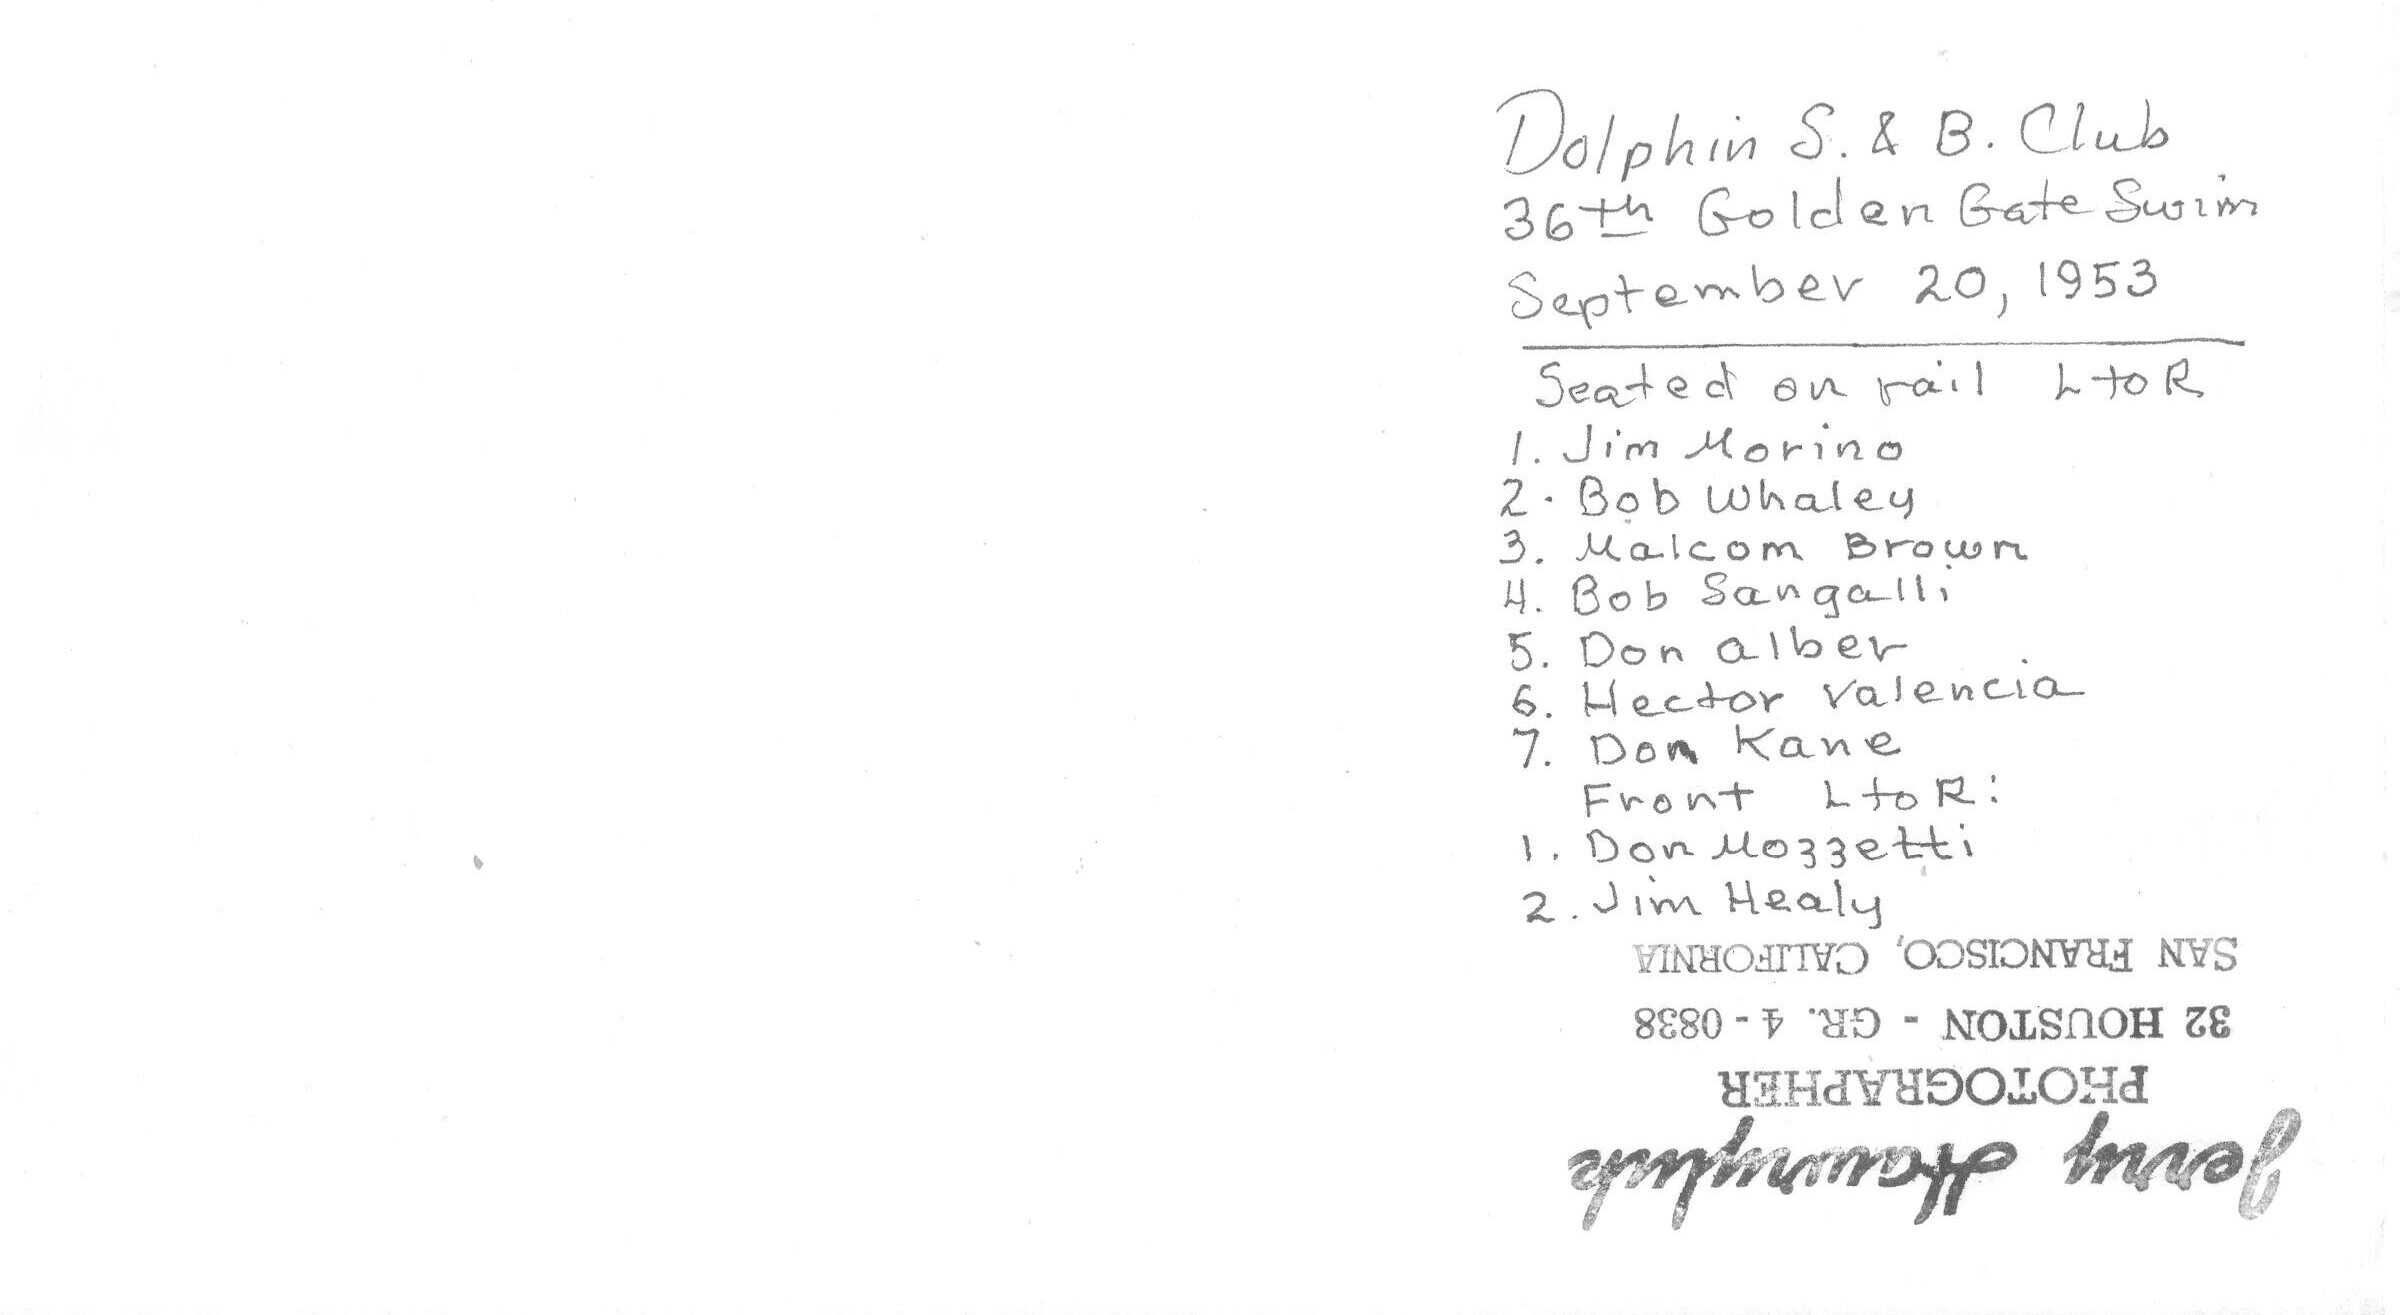 Dolphin S. & B. Club
36th Golden Gate Swim
September 20, 1953
Seated on rail L to R
1. Jim Morino
2. Bob Whaley
3. Malcom Brown
4. Bob Sangalli
5. Don Alber
6. Hector Valencia
7. Don Kane
Front L to R:
1. Don Mozzetti
2. Jim Healy
Jerry
PHOTOGRAPHER
32 HOUSTON - GR. 4-0838
SAN FRANCISCO, CALIFORNIA